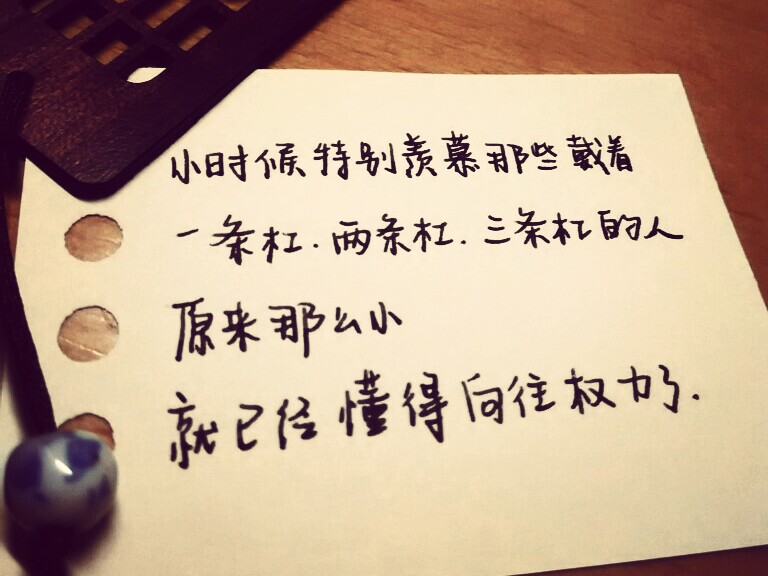 小时候特别羡慕那些戴着
一条杠.两条杠.三条杠的人
原来那么小
就已经懂得向往权力了.